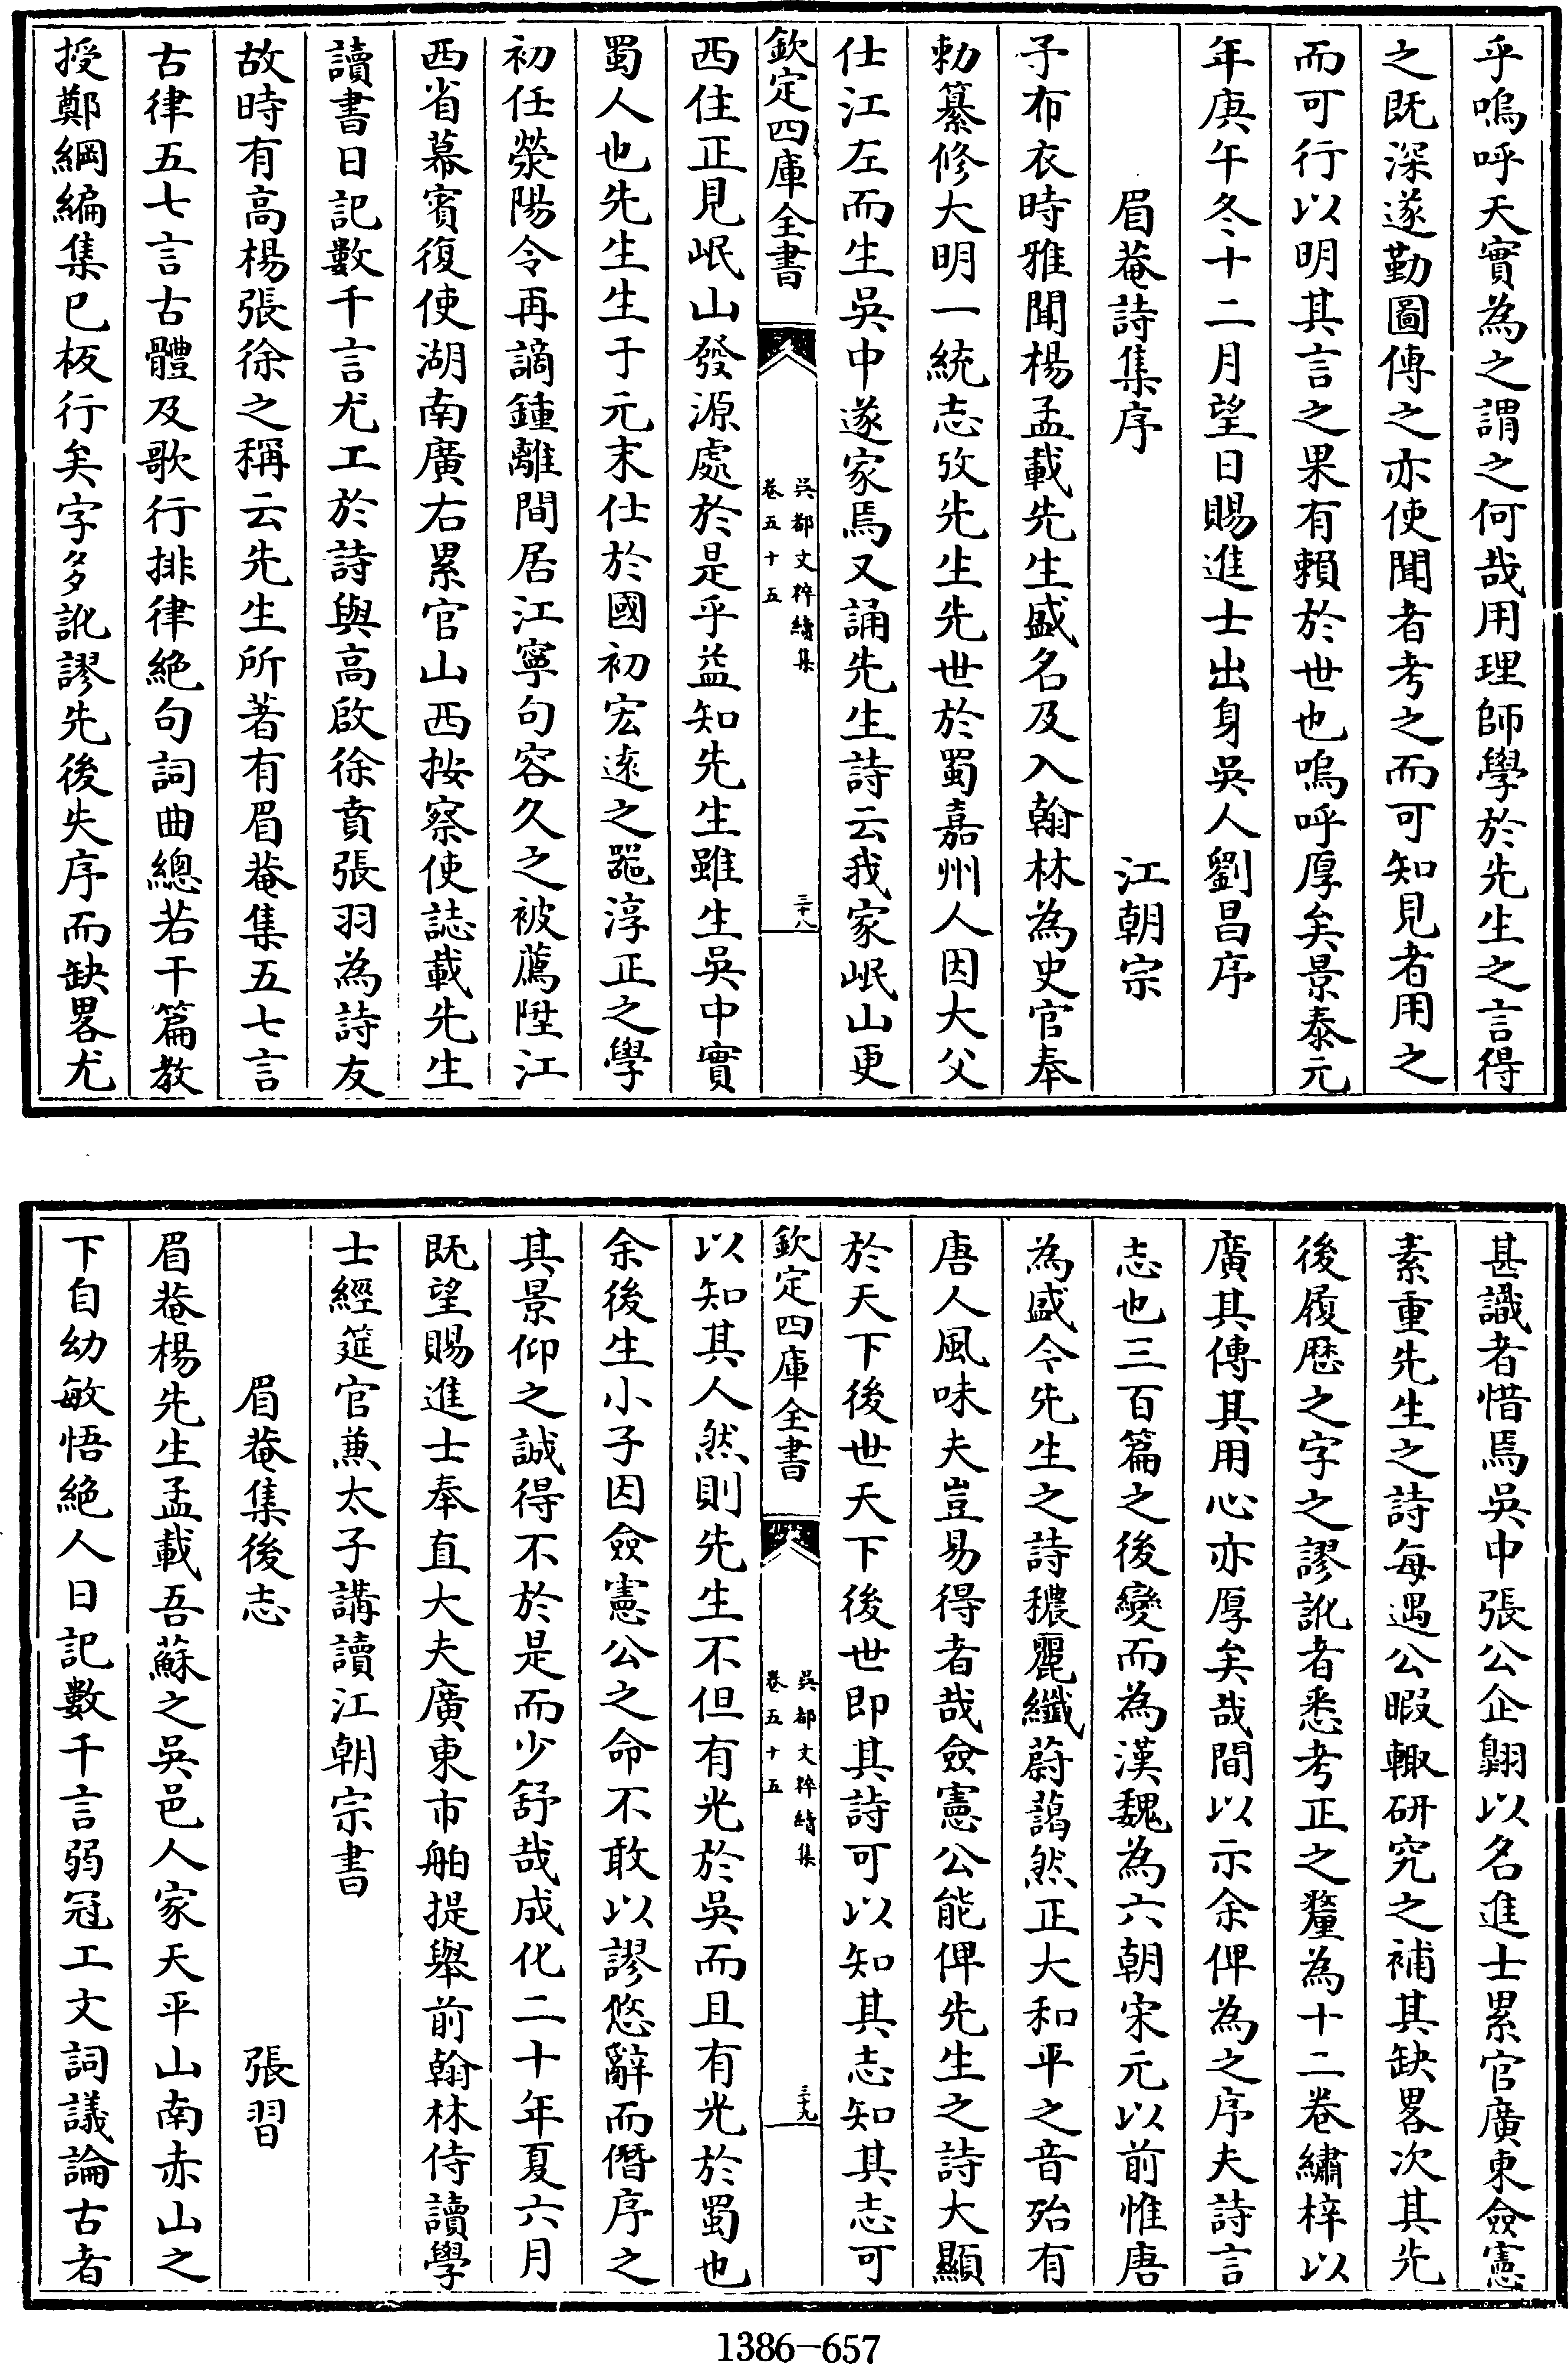 乎嗚呼天實為之謂之何哉用理師學於先生之言得
之既深遂勤圖傳之亦使聞者考之而可知見者用之
而可行以明其言之果有賴於世也嗚呼厚矣景泰元
年庚午冬十二月望日賜進士出身吳人劉昌序
眉菴詩集序 江朝宗
予布衣時雅聞楊孟載先生盛名及入翰林為史官奉
勅纂修大明一統志攷先生先世於蜀嘉州人因大父
仕江左而生吳中遂家焉又誦先生詩云我家岷山更
欽定四庫全書
吳都文粹續集
卷五十五
三十八
西住正見岷山發源處於是乎益知先生雖生吳中實
蜀人也先生生于元末仕於國初宏逺之噐淳正之學
初任滎陽令再謫鍾離間居江寧句容久之被薦陞江
西省幕賓復使湖南廣右累官山西按察使誌載先生
讀書日記數千言尤工於詩與高啟徐賁張羽為詩友
故時有高楊張徐之稱云先生所著有眉菴集五七言
古律五七言古體及歌行排律絕句詞曲總若干篇教
授鄭綱編集已板行矣字多訛謬先後失序而缺畧尤
甚識者惜焉吳中張公企翺以名進士累官廣東僉憲
素重先生之詩每遇公暇輙研究之補其缺畧次其先
後履歴之字之謬訛者悉考正之釐為十二卷繡梓以
廣其傳其用心亦厚矣哉間以示余俾為之序夫詩言
志也三百篇之後變而為漢魏為六朝宋元以前惟唐
為盛今先生之詩穠麗纖蔚藹然正大和平之音殆有
唐人風味夫豈易得者哉僉憲公能俾先生之詩大顯
於天下後世天下後世即其詩可以知其志知其志可
欽定四庫全書
吳都文粹續集
卷五十五
三十九
以知其人然則先生不但有光於吳而且有光於蜀也
余後生小子因僉憲公之命不敢以謬悠辭而僭序之
其景仰之誠得不於是而少舒哉成化二十年夏六月
既望賜進士奉直大夫廣東市舶提舉前翰林侍讀學
士經筵官兼太子講讀江朝宗書
眉菴集後志 張習
眉菴楊先生孟載吾蘇之吳邑人家天平山南赤山之
下自幼敏悟絕人日記數千言弱冠工文詞議論古者
1386-657